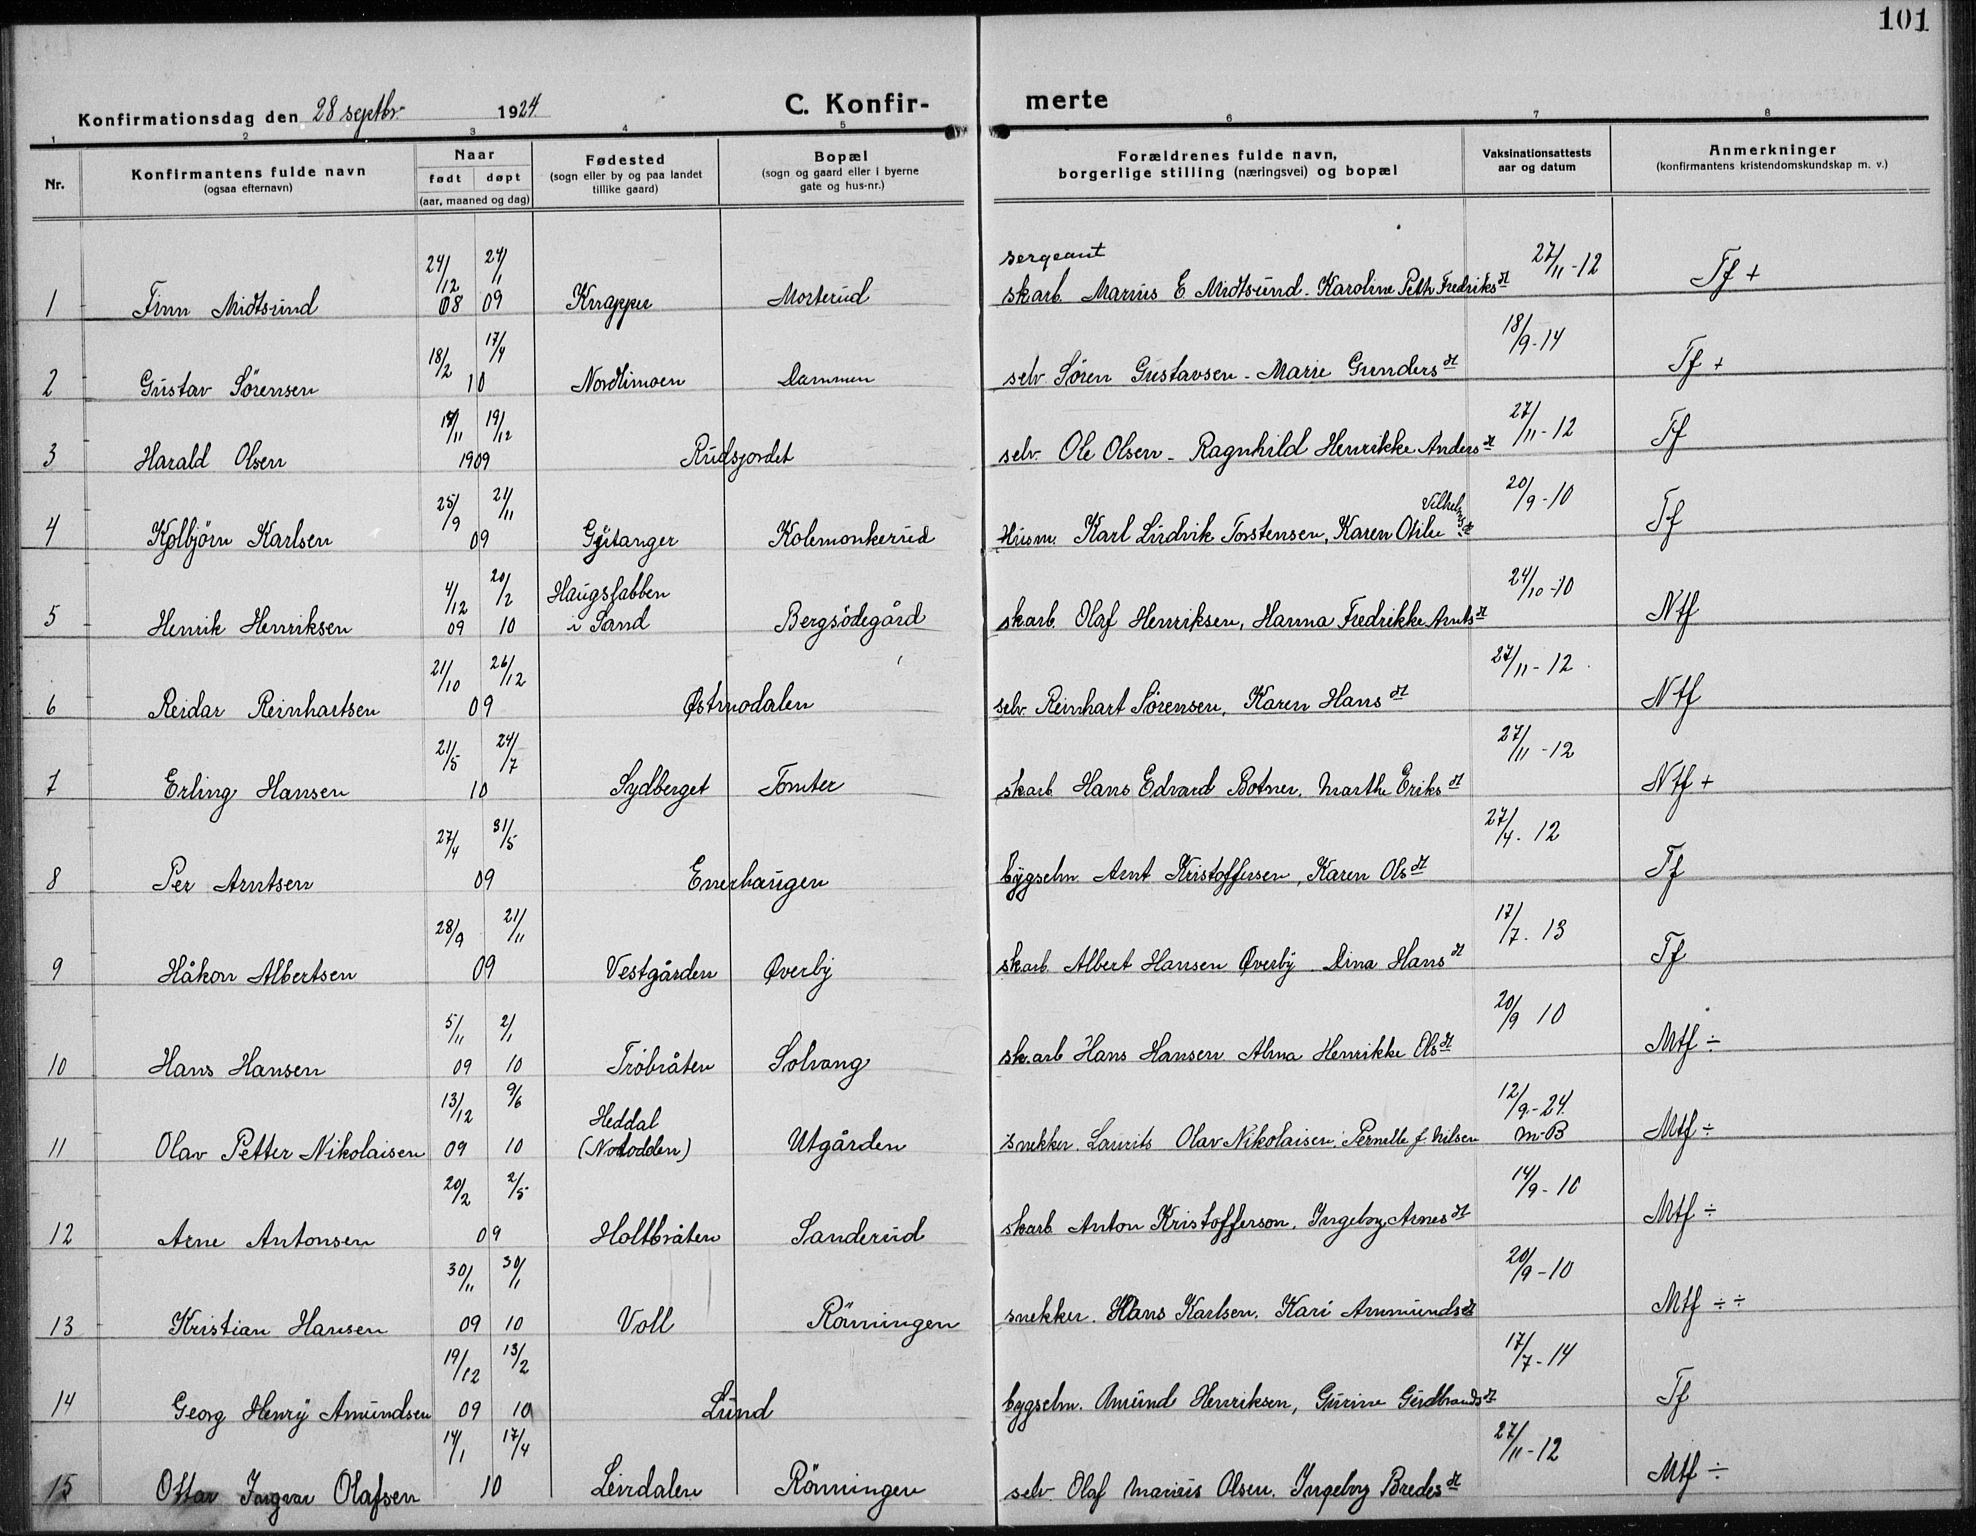 101
Konfirmationsdag den 28 septbr. 1924. C. Konfir- merte
1 2 3 4 5 6 7 8
Nr. Konfirmantens fulde navn (ogsaa efternavn) Naar født døpt (aar, maaned og dag) Fødested (sogn eller by og paa landet tillike gaard) Bopæl (sogn og gaard eller i byerne gate og hus-nr.) Forældrenes fulde navn, borgerlige stilling (næringsvei) og bopæl Vaksinationsattests aar og datum Anmerkninger (konfirmantens kristendomskundskap m. v.)
1 Finn Midtsund 24/12 08 24/1 09 Knapper Morterud sergeant skarb. Marius E. Midtsund - Karoline Petr. Fredriks dt 27/11-12 Tf +
2 Gustav Sørensen 18/2 17/4 10 Nordlimoen Dammen selv. Søren Gustavsen - Marie Gunders dt 18/9-14 Tf +
3 Harald Olsen 11 19/12 1909 Rudsjordet selv. Ole Olsen - Ragnhild Henrikke Anders dt 27/11-12 Tf
4 Kolbjörn Karlsen 25/9 21/11 09 Gjitanger Kolemonkerud Husm. Karl Ludvik Torstensen, Karen Otilie Vilhelms dt 20/9-10 Tf
5 Henrik Henriksen 4/12 09 20/2 10 Haugsfabben i Sand Bergsödegård skarb. Olaf Henriksen, Hanna Fredrikke Arnts dt 24/10-10 Ntf
6 Reidar Reinhartsen 21/10 26/12 09 Østmodalen selv. Reinhart Sørensen, Karen Hans dt 27/11-12 Ntf
7 Erling Hansen 21/5 24/7 10 Sydberget Tomter skarb Hans Edvard Botner, Marthe Eriks dt 27/11-12 Ntf +
8 Per Arntsen 27/4 31/5 09 Enerhaugen bygselm Arnt Kristoffersen, Karen Ols dt 27/4. 12 Tf
9 Håkon Albertsen 28/9 21/11 09 Vestgården Øverby skarb. Albert Hansen Øverby. Dina Hans dt 17/7. 13 Tf
10 Hans Hansen 5/11 09 2/1 10 Tröbråten Solvang skarb Hans Hansen Alma Henrikke Ols dt 20/9 10 Mtf ÷
11 Olav Petter Nikolaisen 13/12 09 9/6 10 Heddal (Notodden) Utgården snekker. Laurits Olav Nikolaisen. Pernelle f. Nilsen 12/9-24. m-B Mtf ÷
12 Arne Antonsen 20/2 2/5 09 Holtbråten Sanderud skarb Anton Kristofferson, Ingeborg Arnes dt 14/9-10 Mtf ÷
13 Kristian Hansen 30/11 09 30/1 10 Voll Rönningen snekker. Hans Karlsen. Kari Ammunds dt 20/9-10 Mtf ÷ ÷
14 Georg Henry Amundsen 19/12 09 13/2 10 Lund bygselm. Amund Henriksen, Gurine Gudbrands dt 17/7-14 Tf
15 Ottar Ingvar Olafsen 14/1 17/4 10 Leirdalen Rönningen selv. Olaf Marius Olsen. Ingeborg Bredes dt 27/11-12 Mtf ÷